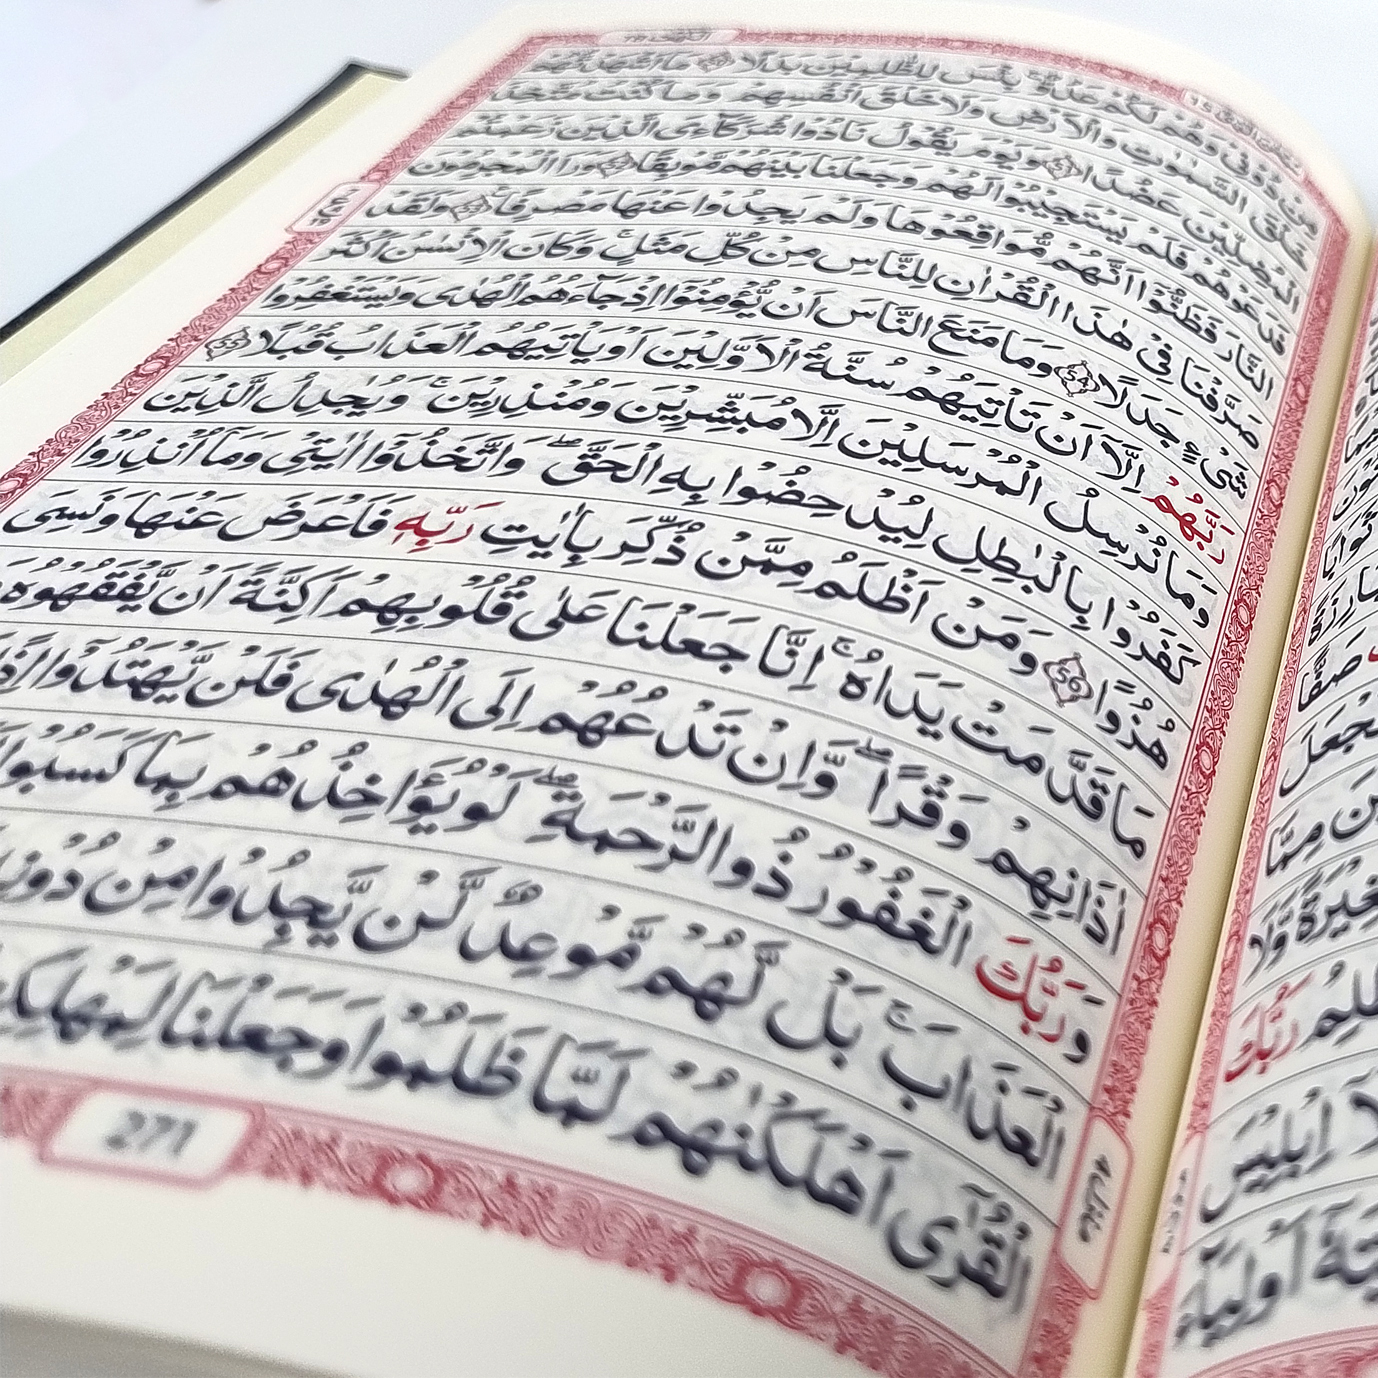 مِنْ دُوْنِيْ وَهُمْ لَكُمْ عَدُوٌّ ؕ بِئْسَ لِلظّٰلِمِيْنَ بَدَلًا مَاۤ اَشْهَدْتُّهُمْ
خَلْقَ السَّمٰوٰتِ وَالْاَرْضِ وَلَا خَلْقَ اَنْفُسِهِمْ وَمَا كُنْتُ مُتَّخِذَ
الْمُضِلِّيْنَ عَضُدًا 51 وَيَوْمَ يَقُوْلُ نَادُوْا شُرَكَآءِيَ الَّذِيْنَ زَعَمْتُمْ
فَدَعَوْهُمْ فَلَمْ يَسْتَجِيْبُوْا لَهُمْ وَجَعَلْنَا بَيْنَهُمْ مَّوْبِقًا 52 وَرَاَ الْمُجْرِمُوْنَ
النَّارَ فَظَنُّوْۤا اَنَّهُمْ مُّوَاقِعُوْهَا وَلَمْ يَجِدُوْا عَنْهَا مَصْرِفًا 53 وَلَقَدْ
صَرَّفْنَا فِيْ هٰذَا الْقُرْاٰنِ لِلنَّاسِ مِنْ كُلِّ مَثَلٍ ؕ وَكَانَ الْاِنْسٰنُ اَكْثَرَ
شَيْءٍ جَدَلًا 54 وَمَا مَنَعَ النَّاسَ اَنْ يُّؤْمِنُوْۤا اِذْ جَآءَهُمُ الْهُدٰى وَيَسْتَغْفِرُوْا
رَبَّهُمْ اِلَّاۤ اَنْ تَاْتِيَهُمْ سُنَّةُ الْاَوَّلِيْنَ اَوْ يَاْتِيَهُمُ الْعَذَابُ قُبُلًا 55
وَمَا نُرْسِلُ الْمُرْسَلِيْنَ اِلَّا مُبَشِّرِيْنَ وَمُنْذِرِيْنَ ۚ وَيُجٰدِلُ الَّذِيْنَ
كَفَرُوْا بِالْبٰطِلِ لِيُدْحِضُوْا بِهِ الْحَقَّ ۖ وَاتَّخَذُوْۤا اٰيٰتِيْ وَمَاۤ اُنْذِرُوْا
هُزُوًا 56 وَمَنْ اَظْلَمُ مِمَّنْ ذُكِّرَ بِاٰيٰتِ رَبِّهٖ فَاَعْرَضَ عَنْهَا وَنَسِيَ
مَا قَدَّمَتْ يَدَاهُ ؕ اِنَّا جَعَلْنَا عَلٰى قُلُوْبِهِمْ اَكِنَّةً اَنْ يَّفْقَهُوْهُ
اٰذَانِهِمْ وَقْرًا ؕ وَاِنْ تَدْعُهُمْ اِلَى الْهُدٰى فَلَنْ يَّهْتَدُوْۤا اِذًا
وَرَبُّكَ الْغَفُوْرُ ذُو الرَّحْمَةِ ؕ لَوْ يُؤَاخِذُهُمْ بِمَا كَسَبُوْا
الْعَذَابَ ؕ بَلْ لَّهُمْ مَّوْعِدٌ لَّنْ يَّجِدُوْا مِنْ دُوْنِهٖ
الْقُرٰۤى اَهْلَكْنٰهُمْ لَمَّا ظَلَمُوْا وَجَعَلْنَا
منزل ٤
271
صَفًّا
نَّجْعَلَ
مِمَّا
وَّلَا
رَبُّكَ
اِبْلِيْسَ
اَوْلِيَآءَ